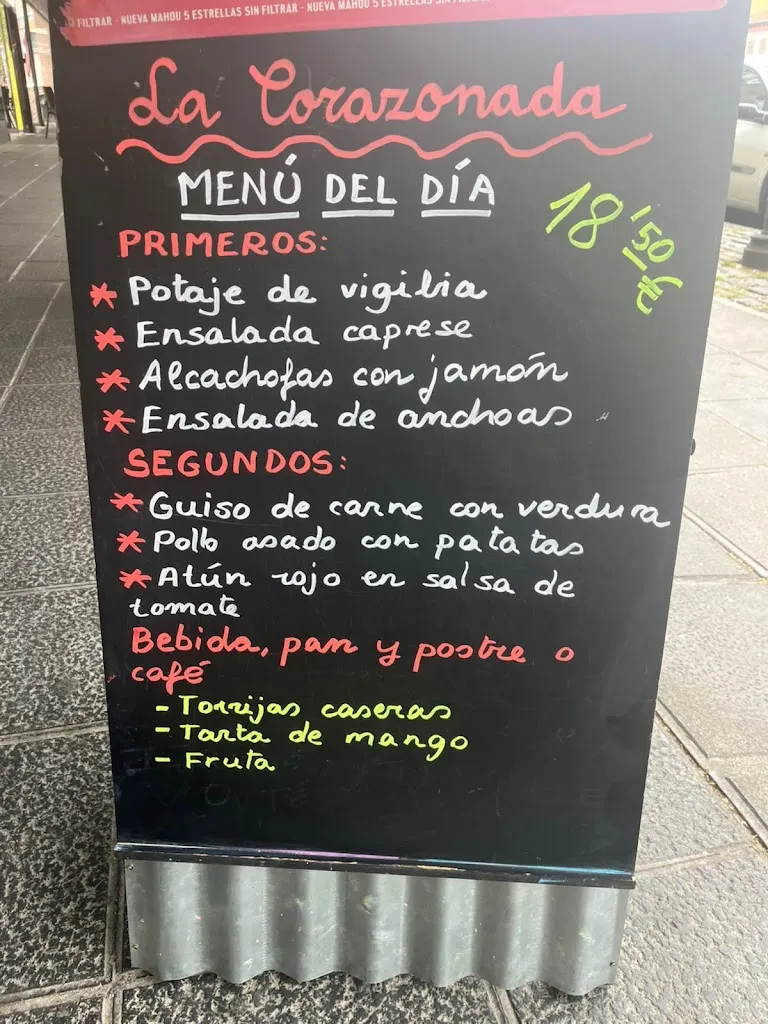 FILTRAR - NUEVA MAHOU 5 ESTRELLAS SIN FILTRAR - NUEVA MAHOU 5 ESTRELLAS SIN
La Corazonada
MENÚ DEL DÍA
18'50€
PRIMEROS:
* Potaje de vigilia
* Ensalada caprese
* Alcachofas con jamón
* Ensalada de anchoas
SEGUNDOS:
* Guiso de carne con verdura
* Pollo asado con patatas
* Atún rojo en salsa de
tomate
Bebida, pan y postre o
café
- Torrijas caseras
- Tarta de mango
- Fruta